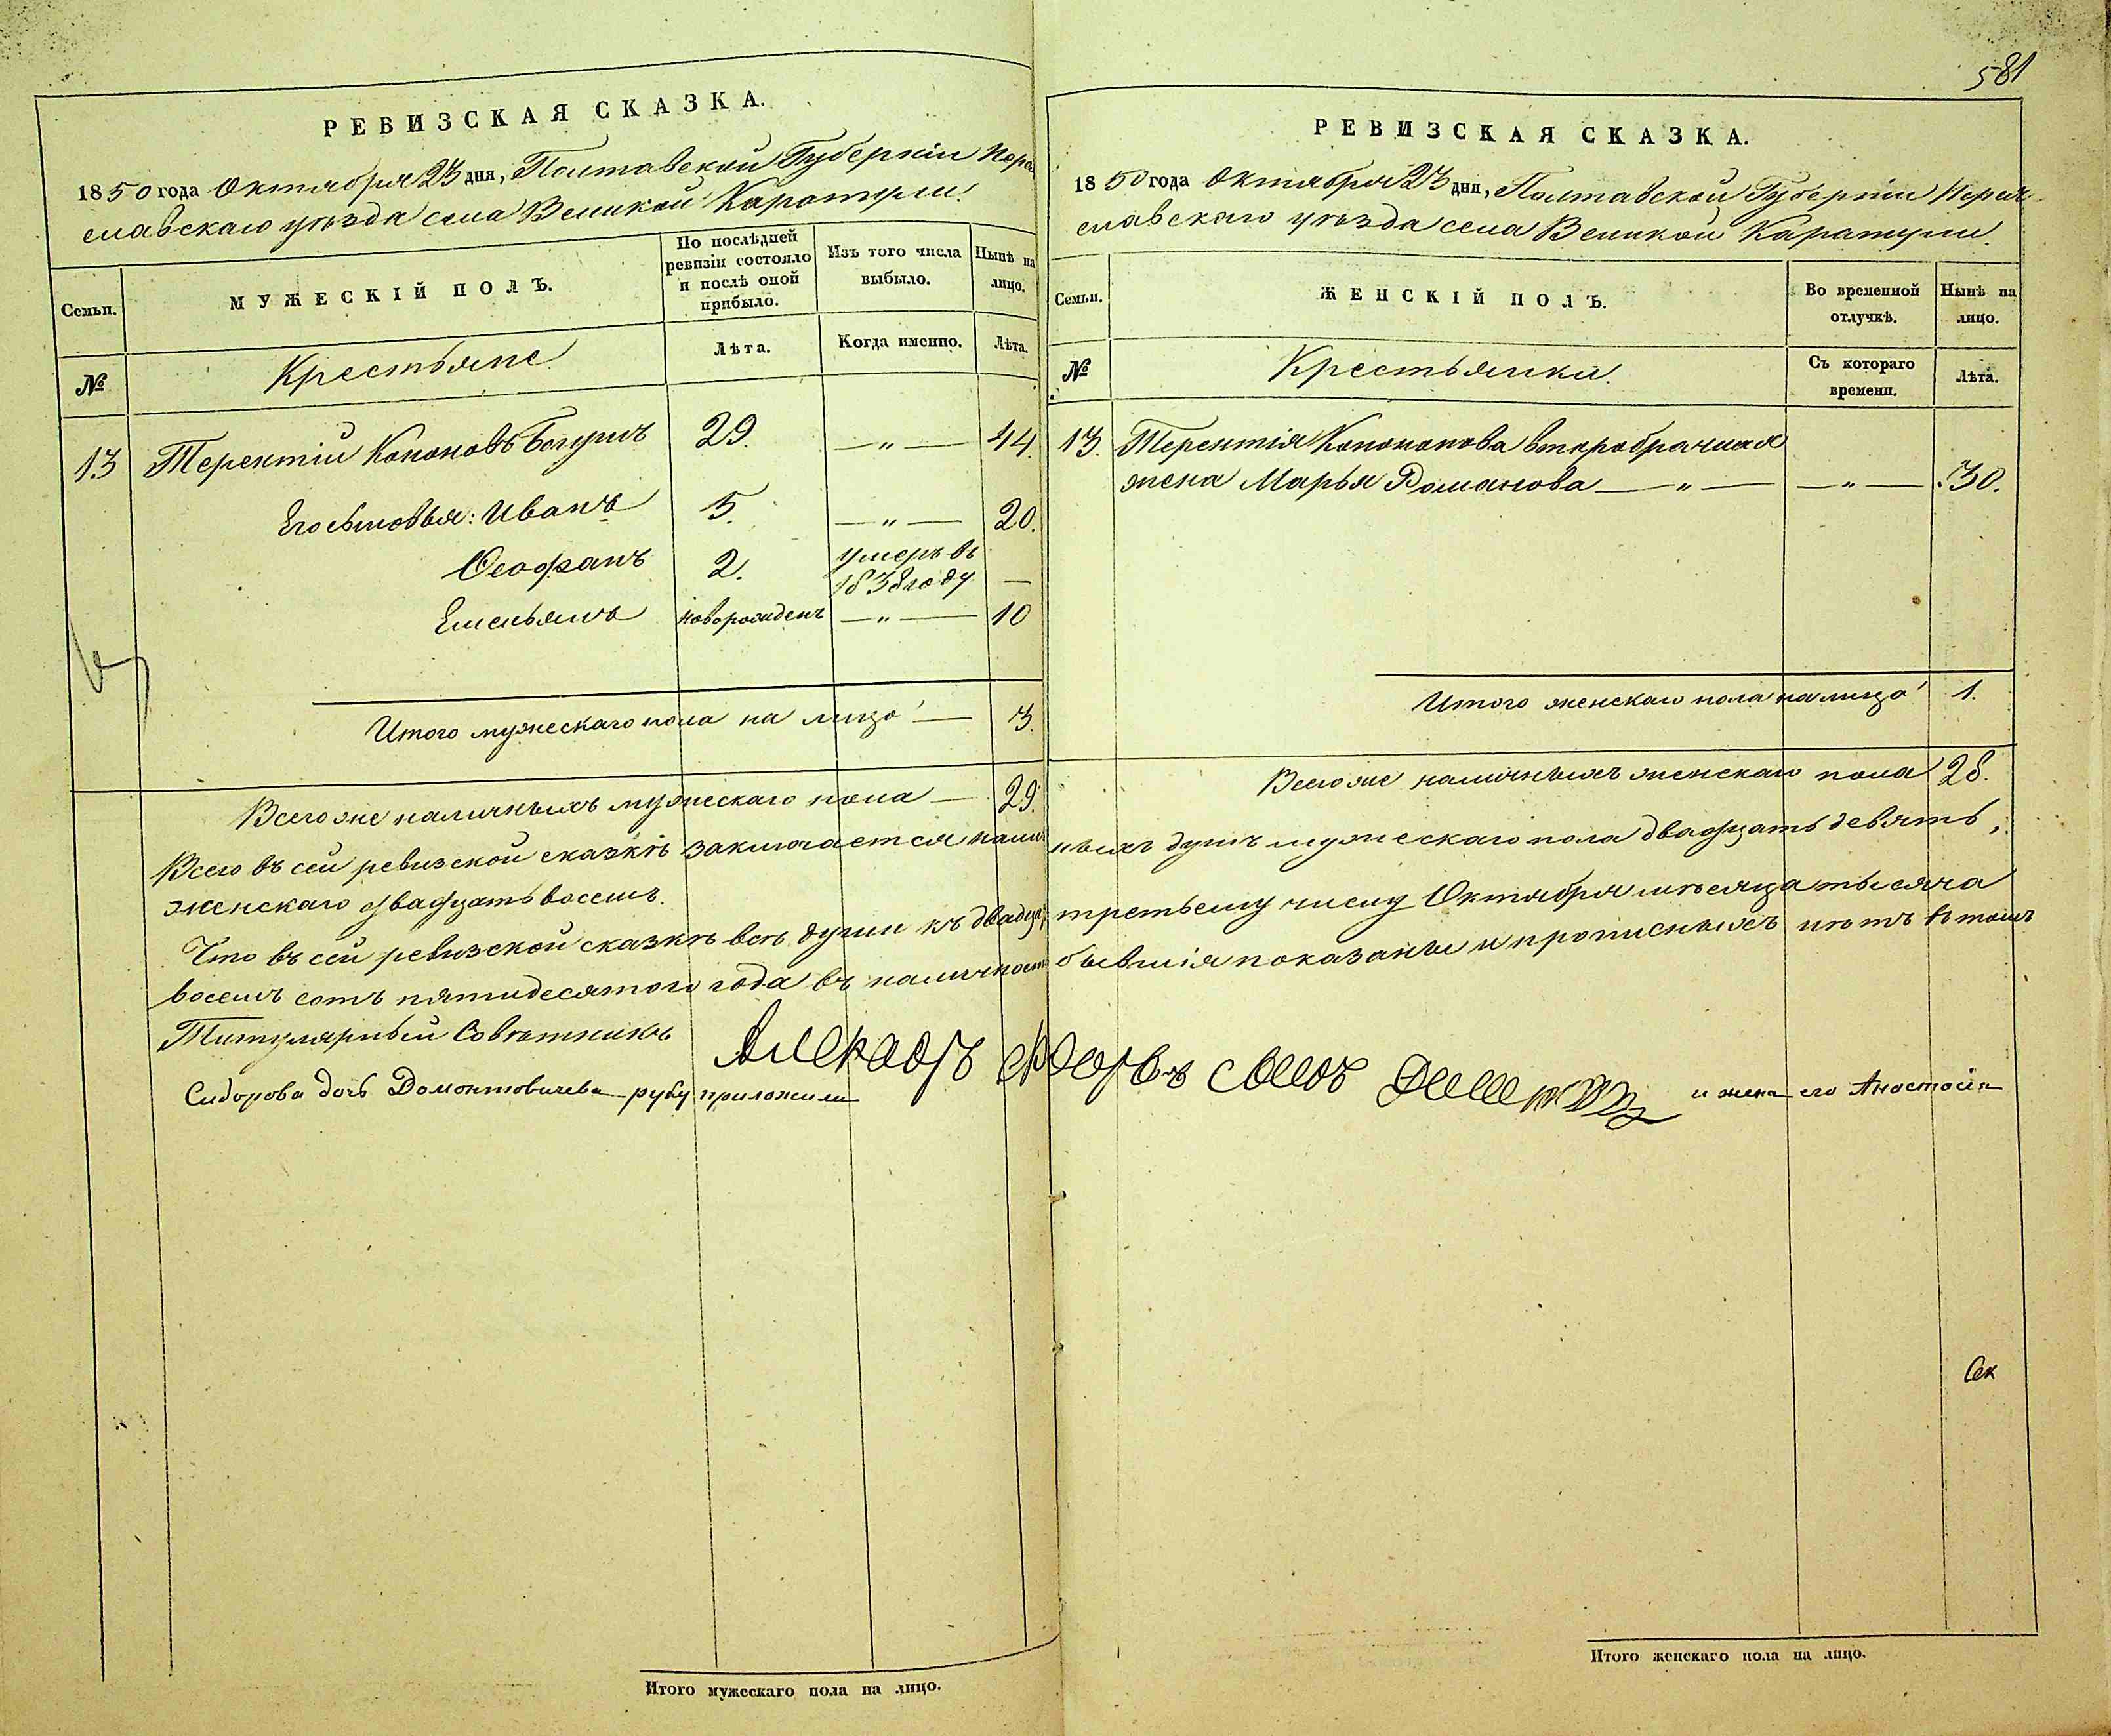 581
РЕВИЗСКАЯ СКАЗКА.
1850 года Октября 23 дня, Полтавской Губернiи Пере
славскаго уѣзда села Великой Каратули.
Семьи.
МУЖЕСКІЙ ПОЛЪ.
По послѣдней ревизіи состояло и послѣ оной прибыло.
Изъ того числа выбыло.
Нынѣ на лицо.
№
Крестьяне
Лѣта.
Когда именно.
Лѣта.
13 Терентiй Кононовъ Богушъ 29. —„— 44.
Его сыновья: Иванъ 5. —„— 20.
Ѳеофанъ 2. умеръ въ 1838 году —
Емельянъ новорожденъ —„— 10
Итого мужескаго пола на лицо — 3.
Всего же наличныхъ мужескаго пола — 29.
РЕВИЗСКАЯ СКАЗКА.
1850 года Октября 23 дня, Полтавской Губернiи Перея
славскаго уѣзда села Великой Каратули.
Семьи.
ЖЕНСКІЙ ПОЛЪ.
Во временной отлучкѣ.
Нынѣ на лицо.
№
Крестьянки.
Съ котораго времени.
Лѣта.
13. Терентiя второбрачная
жена Марья Романова —„— —„— 30.
Итого женскаго пола на лицо 1.
Всего же наличныхъ женскаго пола 28.
Всего въ сей ревизской сказкѣ заключается налич ныхъ душъ мужескаго пола двадцать девять,
женскаго двадцать восемь.
Что въ сей ревизской сказкѣ всѣ души къ двадцать третьему числу Октября мѣсяца тысяча
восемь сотъ пятидесятого года въ наличности бывшiя показаны и прописныхъ нѣтъ въ томъ
Титулярный Совѣтникъ и жена его Анастасiя
Сидорова дочь Домонтовичева руку приложили
Сек
Итого мужескаго пола на лицо.
Итого женскаго пола на лицо.